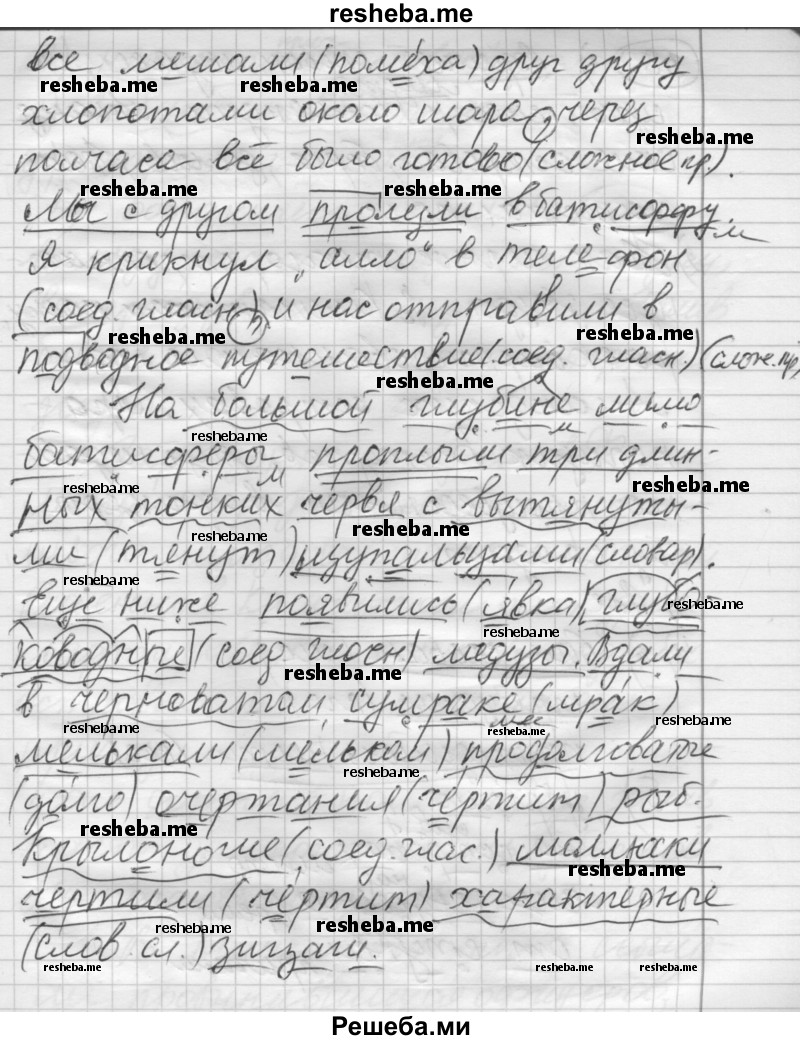 resheba.me
все мешали (помеха) друг другу
resheba.me resheba.me
хлопотами около шара, через
resheba.me
полчаса всё было готово (сложное пр.).
resheba.me resheba.me
Мы с другом пролезли в батисферу.
Я крикнул „алло" в телефон
(соед. гласн.) и нас отправили в
resheba.me resheba.me
подводное путешествие (соед. гласн.) (слож. пр)
resheba.me
На большой глубине мимо
resheba.me
батисферы проплыли три длин-
resheba.me resheba.me
ных тонких червя с вытянуты-
resheba.me resheba.me
ми (тянут) щупальцами (словар).
resheba.me
Ещё ниже появились (явка) глубо-
resheba.me
resheba.me
ководные (соед гласн) медузы. Вдали
resheba.me
в черноватом сумраке (мрак)
resheba.me resheba.me resheba.me
мелькали (мельком) продолговатые
resheba.me
(долго) очертания (чертит) рыб.
resheba.me
Крылоногие (соед. глас.) моллюски
resheba.me
чертили (чертит) характерные
resheba.me resheba.me
(слов. сл.) зигзаги.
resheba.me resheba.me resheba.me
Решеба.ми